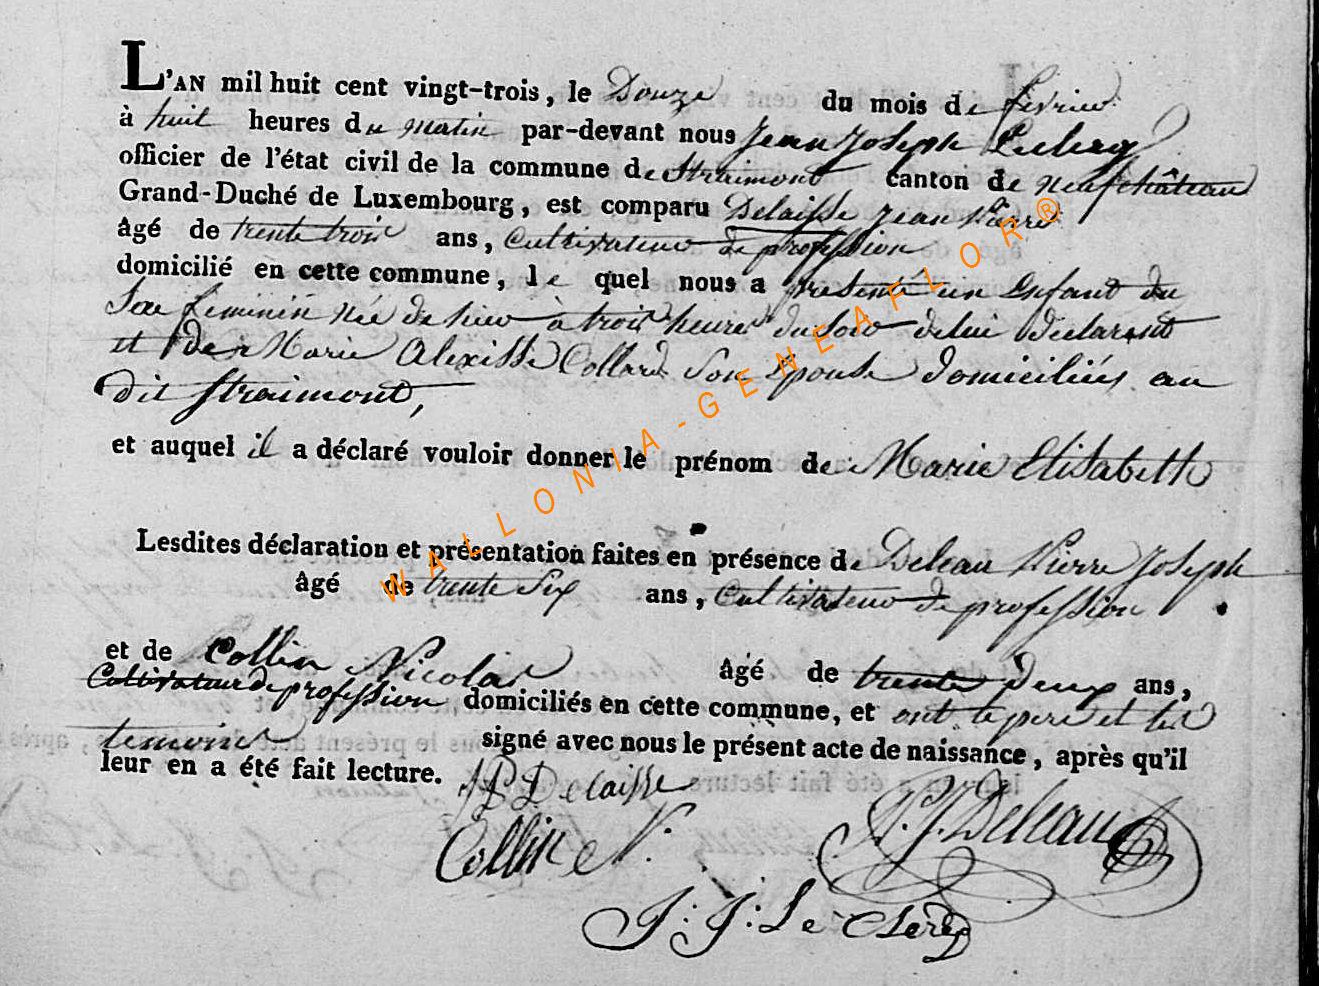 L'AN mil huit cent vingt-trois, le Douze du mois de fevrier
à huit heures du matin par-devant nous Jean Joseph Leclercq
officier de l'état civil de la commune de Straimont canton de neufchâteau
Grand-Duché de Luxembourg, est comparu Delaisse Jean Pierre
âgé de trente trois ans, Cultivateur de profession
domicilié en cette commune, le quel nous a presenté un Enfant du
Sexe feminin née de hier à trois heures du soir de lui Declarant
et de Marie Alexisse Collard Son Epouse domiciliés au
dit Straimont,
et auquel il a déclaré vouloir donner le prénom de Marie Elisabeth
Lesdites déclaration et présentation faites en présence de Deleau Pierre Joseph
âgé de trente Six ans, Cultivateur de profession
et de Collin Nicolas âgé de trente Deux ans,
Cultivateur de profession domiciliés en cette commune, et ont le pere et les
temoins signé avec nous le présent acte de naissance, après qu'il
leur en a été fait lecture.
JP Delaisse
Collin N. P. J. Deleau
J: J: Le Clercq
WALLONIA-GENEAFLOR®